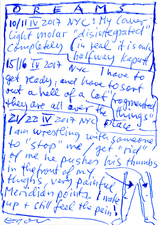 DREAMS
10/11 IV 2017 NYC: My lower
light molar "disintegrated"
completely (in real it is only
halfway kaputt)
15/16 IV 2017 NYC I have to
get ready, and have to sort
out a hell of a lot fragmented
they are all over the "things"
21/22 IV 2017 NYC place.
I am wrestling with someone
to "stop" me / get rid
of me he pushes his thumbs
in the front of my
thighs, very painful
Meridian points. I wake
up + still feel the pain!